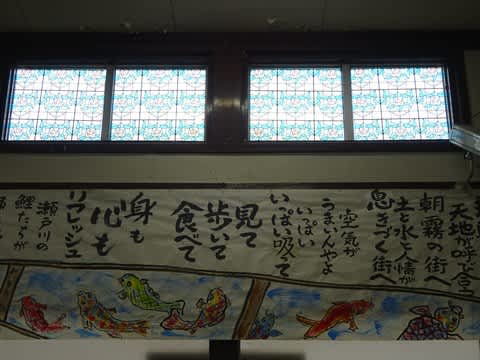 天地が呼び合う
朝霧の街へ
土と水と人情が
息きづく街へ
空気が
うまいんやよ
いっぱい
いっぱい吸って
見て
歩いて
食べて
身も
心も
リフレッシュ
瀬戸川の
鯉たちが